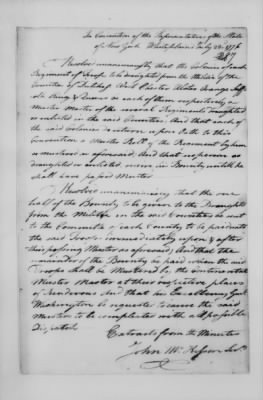 In Convention of the Representatives of the State
of New York White plains July 22: 1776
Resolved unanimously that the Colonels of each
Regiment of Troops to be draughted from the Militia of the
Counties of Dutchess West Chester Ulster Orange Suffolk
Kings & Queens in each of them respectively a
Muster Master of the several Regiments draughted
or enlisted in the said Counties. And that each of
the said Colonels do return upon Oath to this
Convention a Muster Roll of the Regiment by him
so mustered as aforesaid. And that no person so
draughted or enlisted receive any Bounty until he
shall have passed Muster
Resolved unanimously that the one
half of the Bounty to be given to the Draughts
from the Militia in the said Counties be sent
to the Committee of each County to be paid unto
the said Troops immediately upon & after
their passing Muster as aforesaid; And that the
remainder of the Bounty be paid when the said
Troops shall be Mustered by the Continental
Muster Master at their respective places
of Rendezvous And that his Excellency Genl
Washington be requested to cause the said
Musters to be compleated with all possible
Dispatch
Extracts from the Minutes
John McKesson Secy